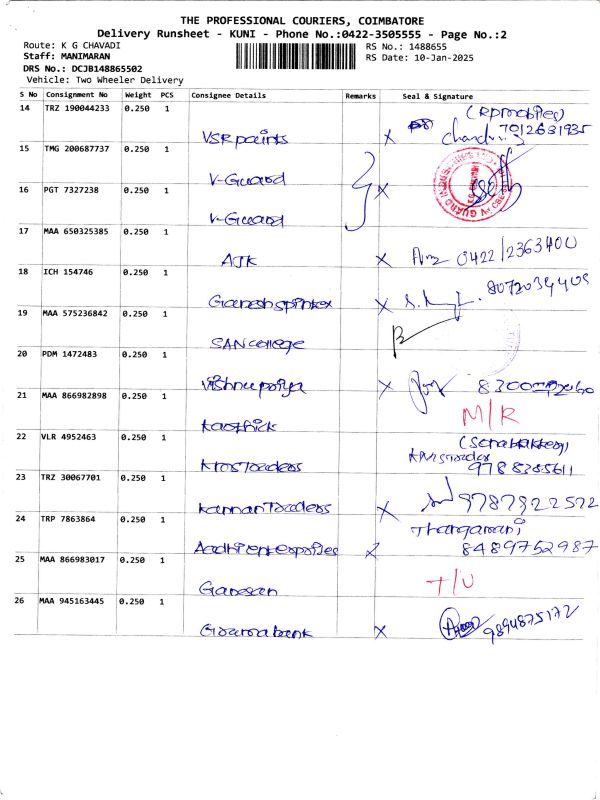 THE PROFESSIONAL COURIERS, COIMBATORE
Delivery Runsheet - KUNI - Phone No.:0422-3505555 - Page No.:2
Route: K G CHAVADI
RS No.: 1488655
Staff: MANIMARAN
RS Date: 10-Jan-2025
DRS No.: DCJB148865502
Vehicle: Two Wheeler Delivery
S No Consignment No Weight PCS Consignee Details Remarks Seal & Signature
14 TRZ 190044233 0.250 1
VSR paints X 7012631935
15 TMG 200687737 0.250 1
V-Guard
16 PGT 7327238 0.250 1 X
V-Guard
17 MAA 650325385 0.250 1
AJK X 0422/2363400
18 ICH 154746 0.250 1
X 8072034409
19 MAA 575236842 0.250 1
SAN college
20 PDM 1472483 0.250 1
Vishnupriya X
21 MAA 866982898 0.250 1
Karthick M/R
22 VLR 4952463 0.250 1
Traders 9788385611
23 TRZ 30067701 0.250 1
Kannan Traders X 9787922572
24 TRP 7863864 0.250 1 Thangamani
Aadhi enterprises 8489752987
25 MAA 866983017 0.250 1
Ganesan T/U
26 MAA 945163445 0.250 1
bank X 9894875172